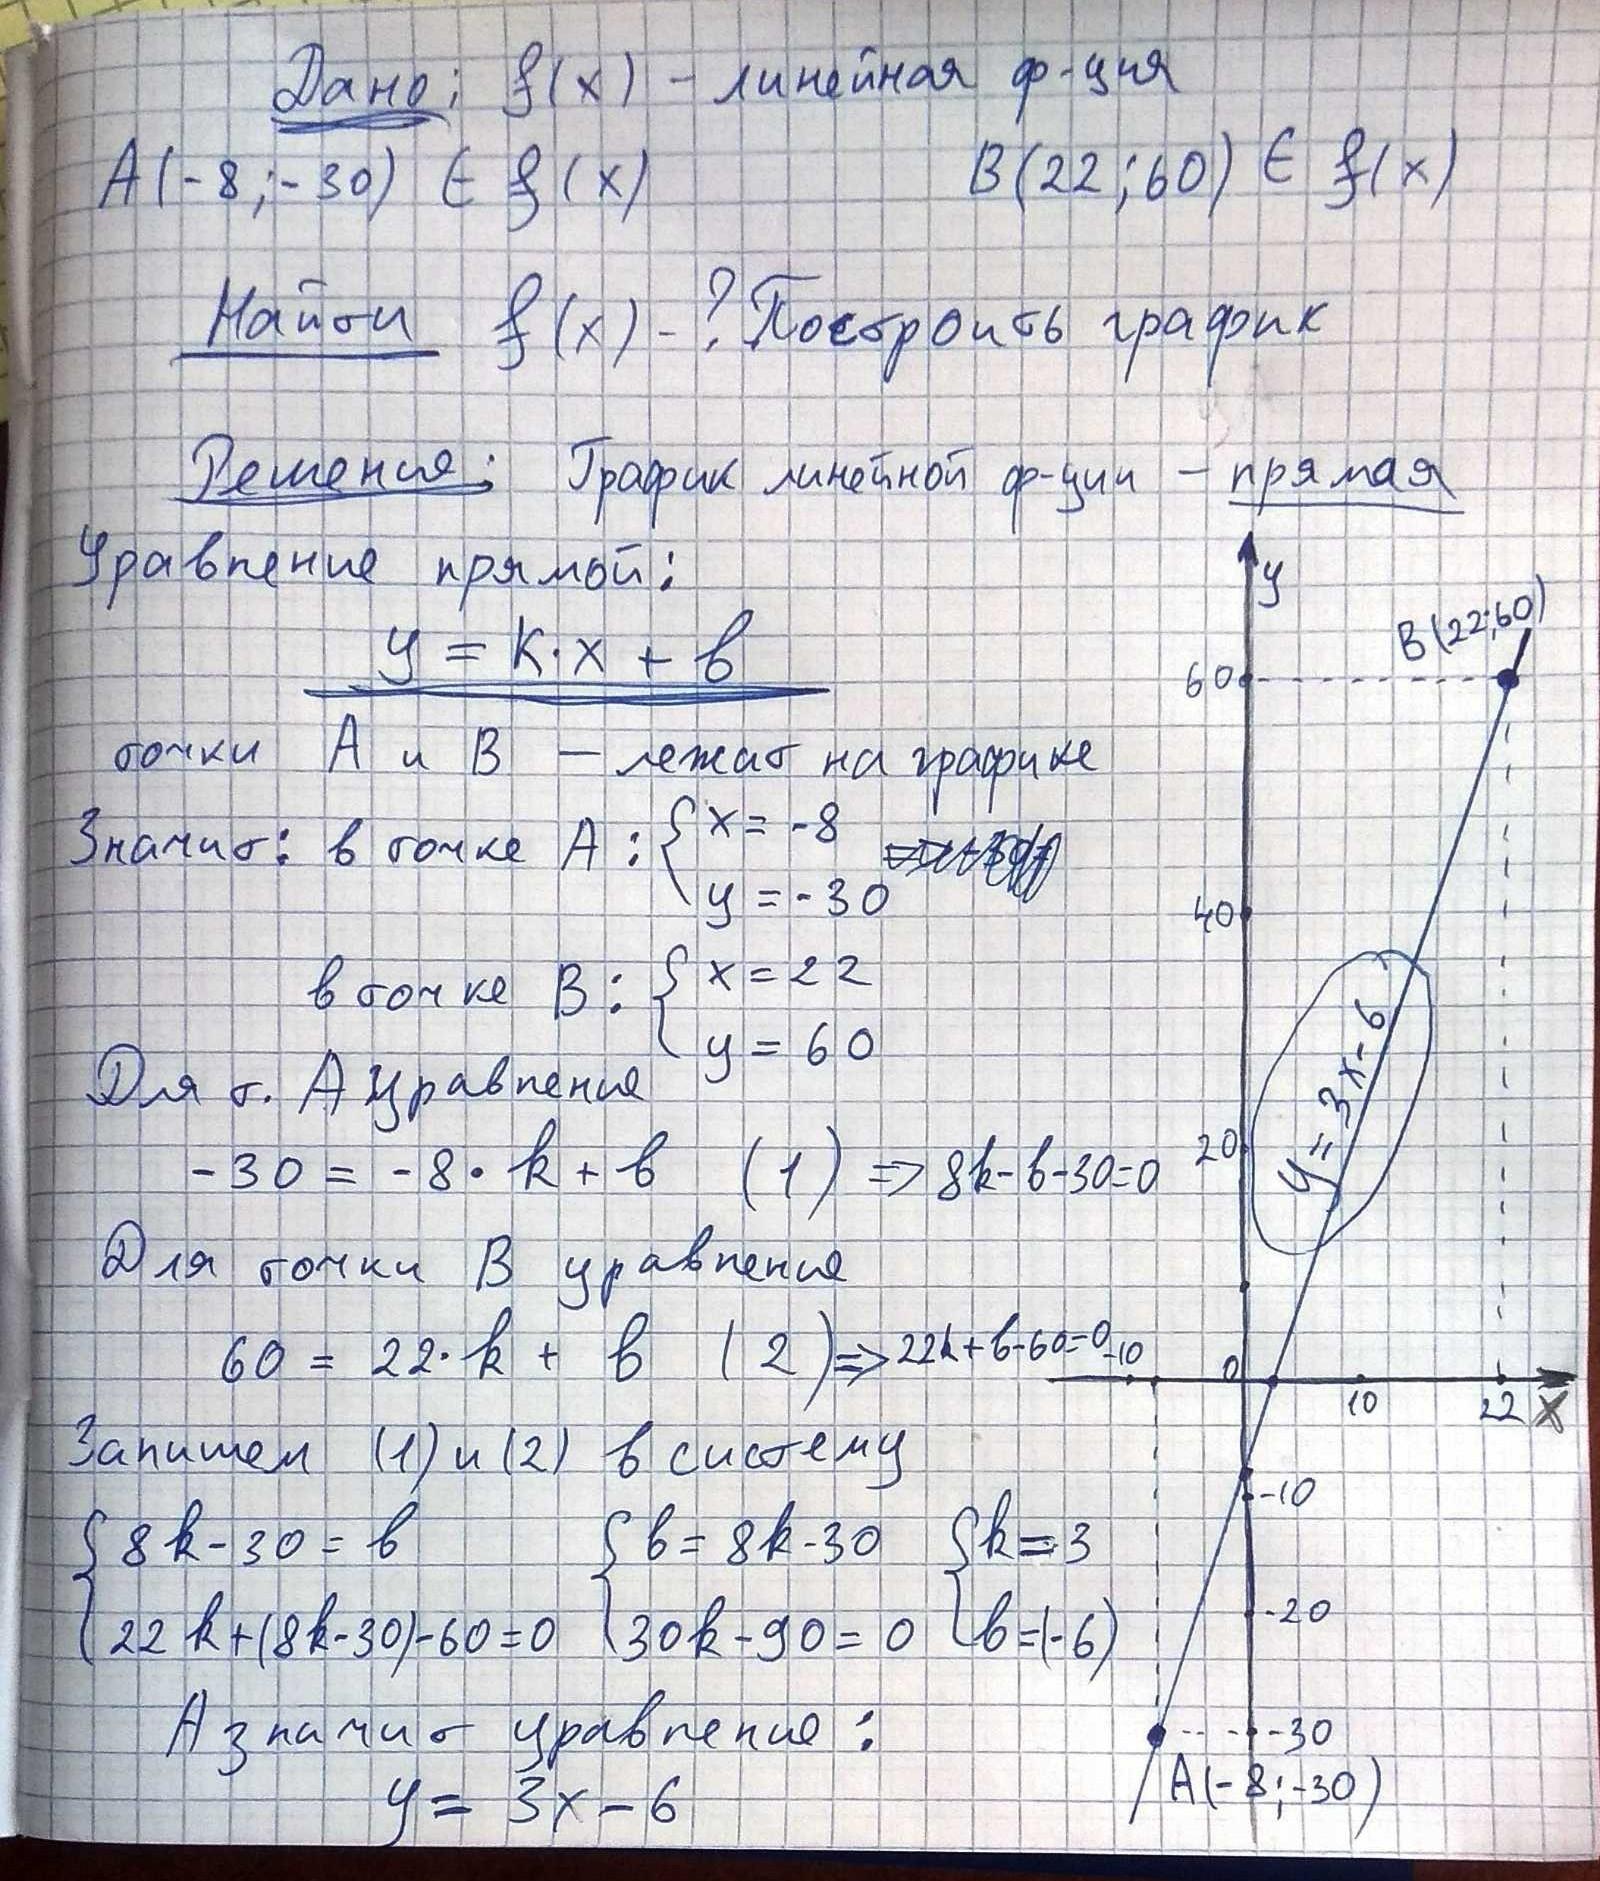 Дано: f(x) – линейная ф-ция
A(-8;-30) ∈ f(x) B(22;60) ∈ f(x)
Найти f(x) - ? Построить график
Решения: График линейной ф-ции – прямая
Уравнение прямой:
y = k·x + b
точки A и B – лежат на графике
Значит: в точке A: { x = -8
y = -30
в точке B: { x = 22
y = 60
Для т. A уравнение
-30 = -8·k + b (1) => 8k-b-30=0
Для точки B уравнение
60 = 22·k + b (2) => 22k+b-60=0
Запишем (1) и (2) в систему
{ 8k-30 = b { b = 8k-30 { k = 3
22k+(8k-30)-60=0 30k-90=0 b=(-6)
А значит уравнение:
y = 3x-6
y
B(22;60)
60
40
y = 3x-6
20
-10 0 10 22 x
-10
-20
-30
A(-8;-30)